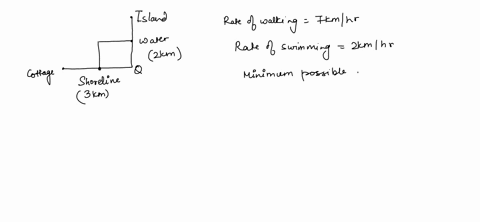 Island
water
(2km)
Cottage
Q
Shoreline
(3km)
Rate of walking = 7km/hr
Rate of swimming = 2km/hr
Minimum possible .